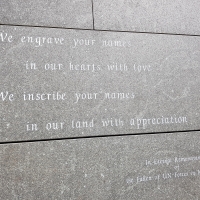 We engrave your names
in our hearts with love
We inscribe your names
in our land with appreciation
In Solemn Remembrance
of
the fallen of UN forces in